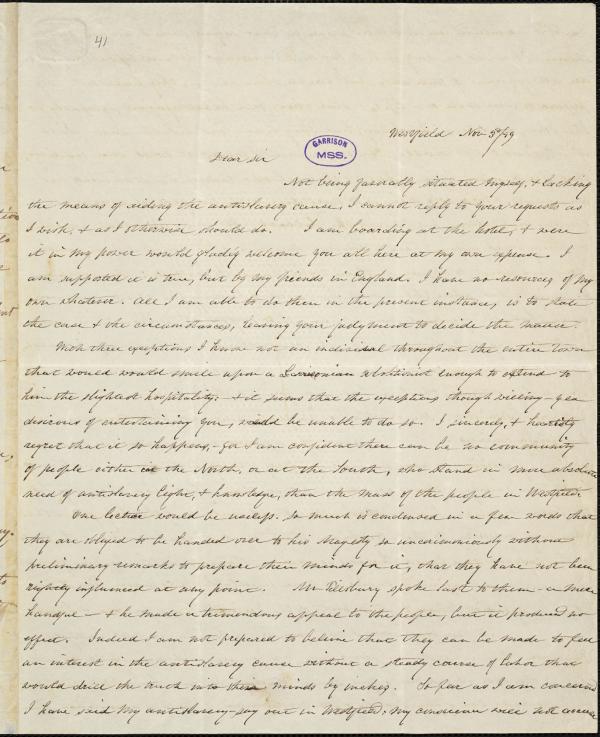 41
Westfield Nov 3d/49
GARRISON
MSS.
Dear Sir
Not being favorably situated myself, & lacking
the means of aiding the antislavery cause, I cannot reply to your requests as
I wish, & as I otherwise should do. I am boarding at the hotel, & were
it in my power would gladly welcome you all here at my own expense. I
am supported it is true, but by my friends in England. I have no resources of my
own whatever. All I am able to do then in the present instance, is to state
the case & the circumstances, leaving your judgment to decide the matter.
With three exceptions I know not an individual throughout the entire town
that would would smile upon a Garrisonian abolitionist enough to extend to
him the slightest hospitality: & it seems that the exceptions though willing - yea
desirous of entertaining you, would be unable to do so. I sincerely, & heartily
regret that it so happens, - for I am confident there can be no community
of people either in the North, or at the South, who stand in more absolute
need of antislavery light, & knowledge, than the mass of the people in Westfield.
One lecture would be useless. So much is condensed in a few words that
they are obliged to be handed over to his Majesty so unceremoniously without
preliminary remarks to prepare their minds for it, that they have not been
rightly influenced at any point. Mr Pillsbury spoke last to them - a mere
handful - & he made a tremendous appeal to the people, but it produced no
effect. Indeed I am not prepared to believe that they can be made to feel
an interest in the antislavery cause without a steady course of labor that
would drill the truth into their minds by inches. So far as I am concerned
I have said my antislavery-say out in Westfield; my conscience will not accuse